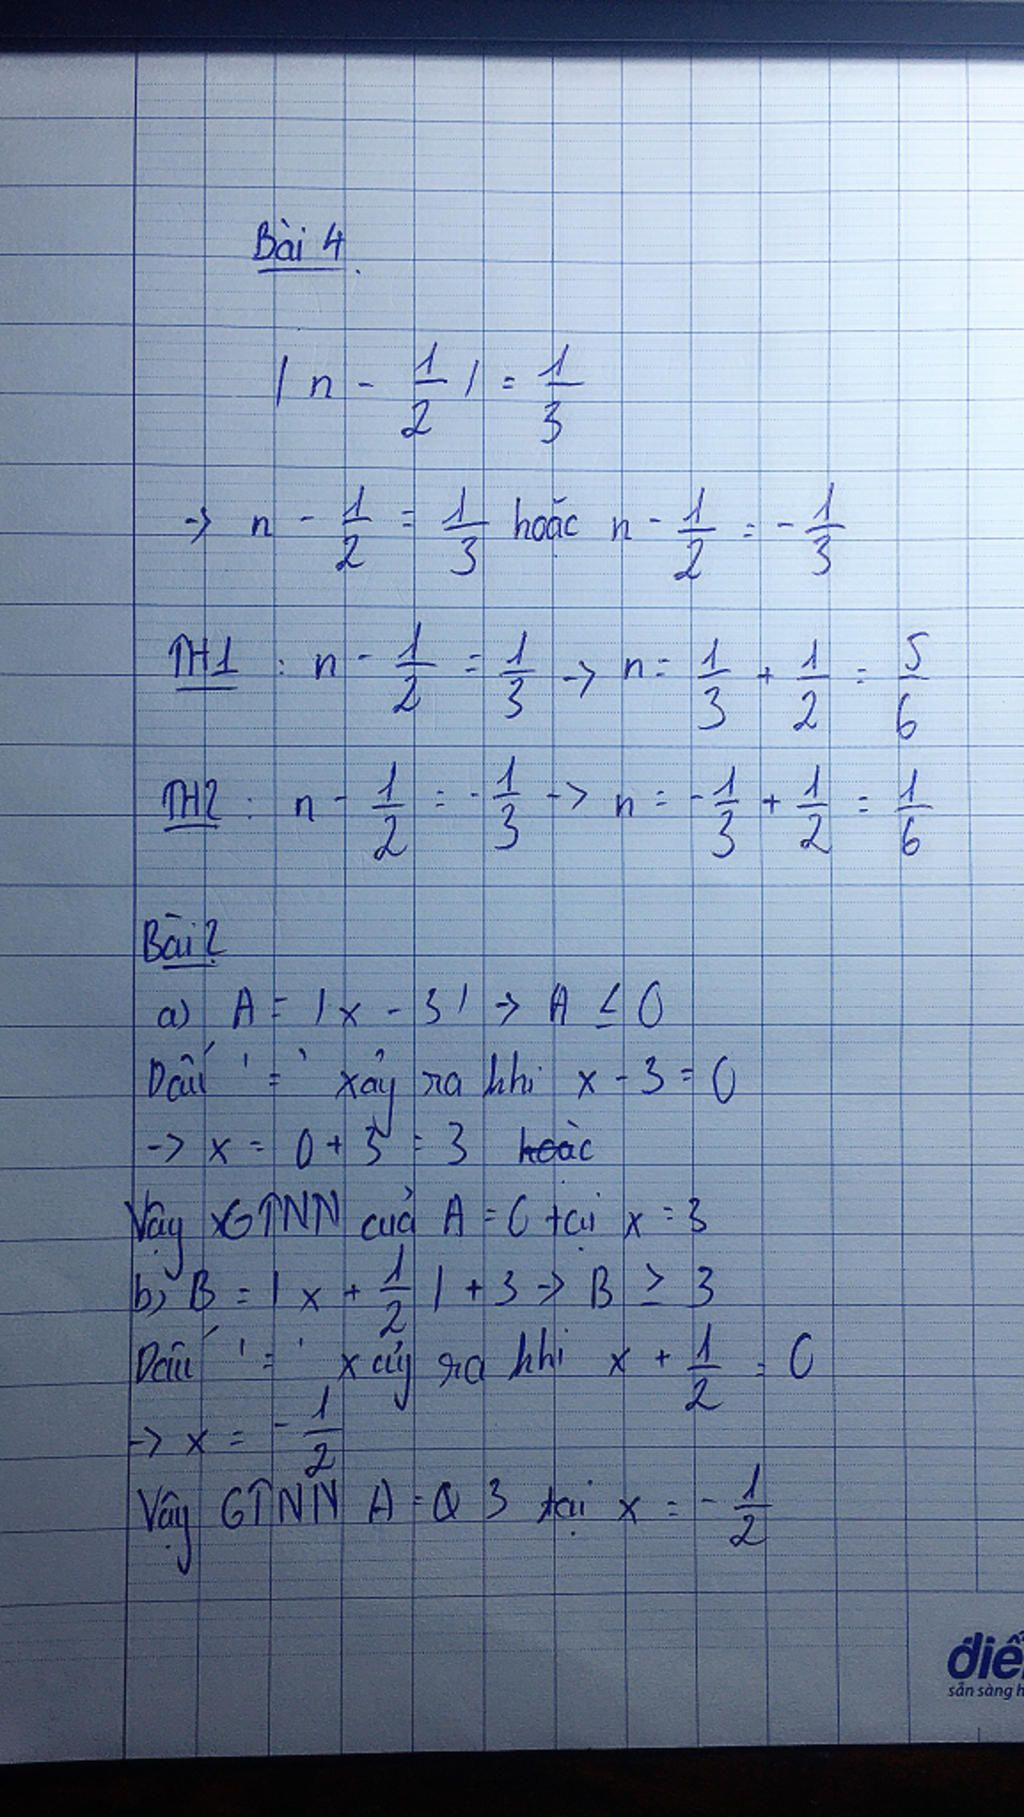 Bài 4.
|n - 1/2| = 1/3
-> n - 1/2 = 1/3 hoặc n - 1/2 = -1/3
TH1 : n - 1/2 = 1/3 -> n = 1/3 + 1/2 = 5/6
TH2 : n - 1/2 = -1/3 -> n = -1/3 + 1/2 = 1/6
Bài 2
a) A = |x - 3| -> A ≤ 0
Dấu '=' xảy ra khi x - 3 = 0
-> x = 0 + 3 = 3 hoặc
Vậy GTNN của A = 0 tại x = 3
b) B = |x + 1/2| + 3 -> B ≥ 3
Dấu '=' xảy ra khi x + 1/2 = 0
-> x = -1/2
Vậy GTNN A = 3 tại x = -1/2
sẵn sàng